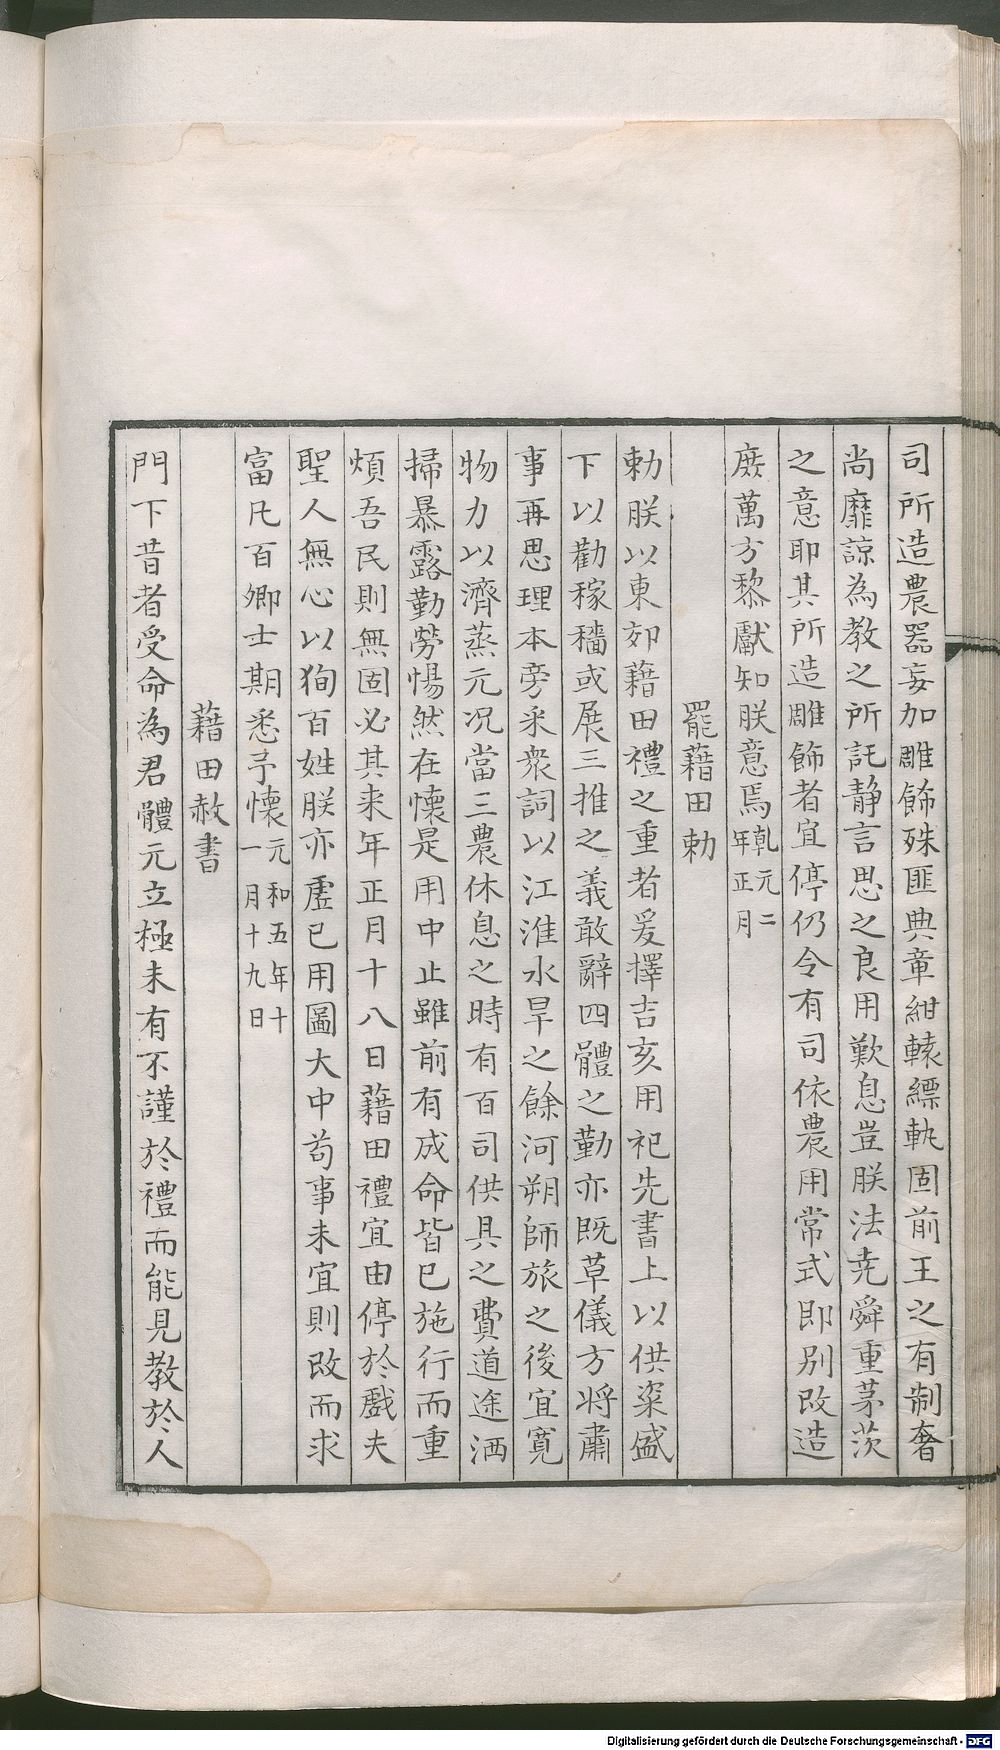 司所造農器妄加雕飾殊匪典章紺轅縹軏固前王之有制奢
尚靡諒為教之所託靜言思之良用歎息豈朕法堯舜重茅茨
之意耶其所造雕飾者宜停仍令有司依農用常式即別改造
庻萬方黎獻知朕意焉乾元二年正月
罷藉田勅
勅朕以東郊藉田禮之重者爰擇吉亥用祀先書上以供粢盛
下以勸稼穡或展三推之義敢辭四體之勤亦既草儀方將肅
事再思理本旁采衆詞以江淮水旱之餘河朔師旅之後宜寬
物力以濟蒸元况當三農休息之時有百司供具之費道途洒
掃暴露勤勞惕然在懷是用中止雖前有成命皆已施行而重
煩吾民則無固必其来年正月十八日藉田禮宜由停於戲夫
聖人無心以狥百姓朕亦虗已用圖大中苟事未宜則改而求
富凡百卿士期悉予懷元和五年十一月十九日
藉田赦書
門下昔者受命為君體元立極未有不謹於禮而能見教於人
Digitalisierung gefördert durch die Deutsche Forschungsgemeinschaft - DFG